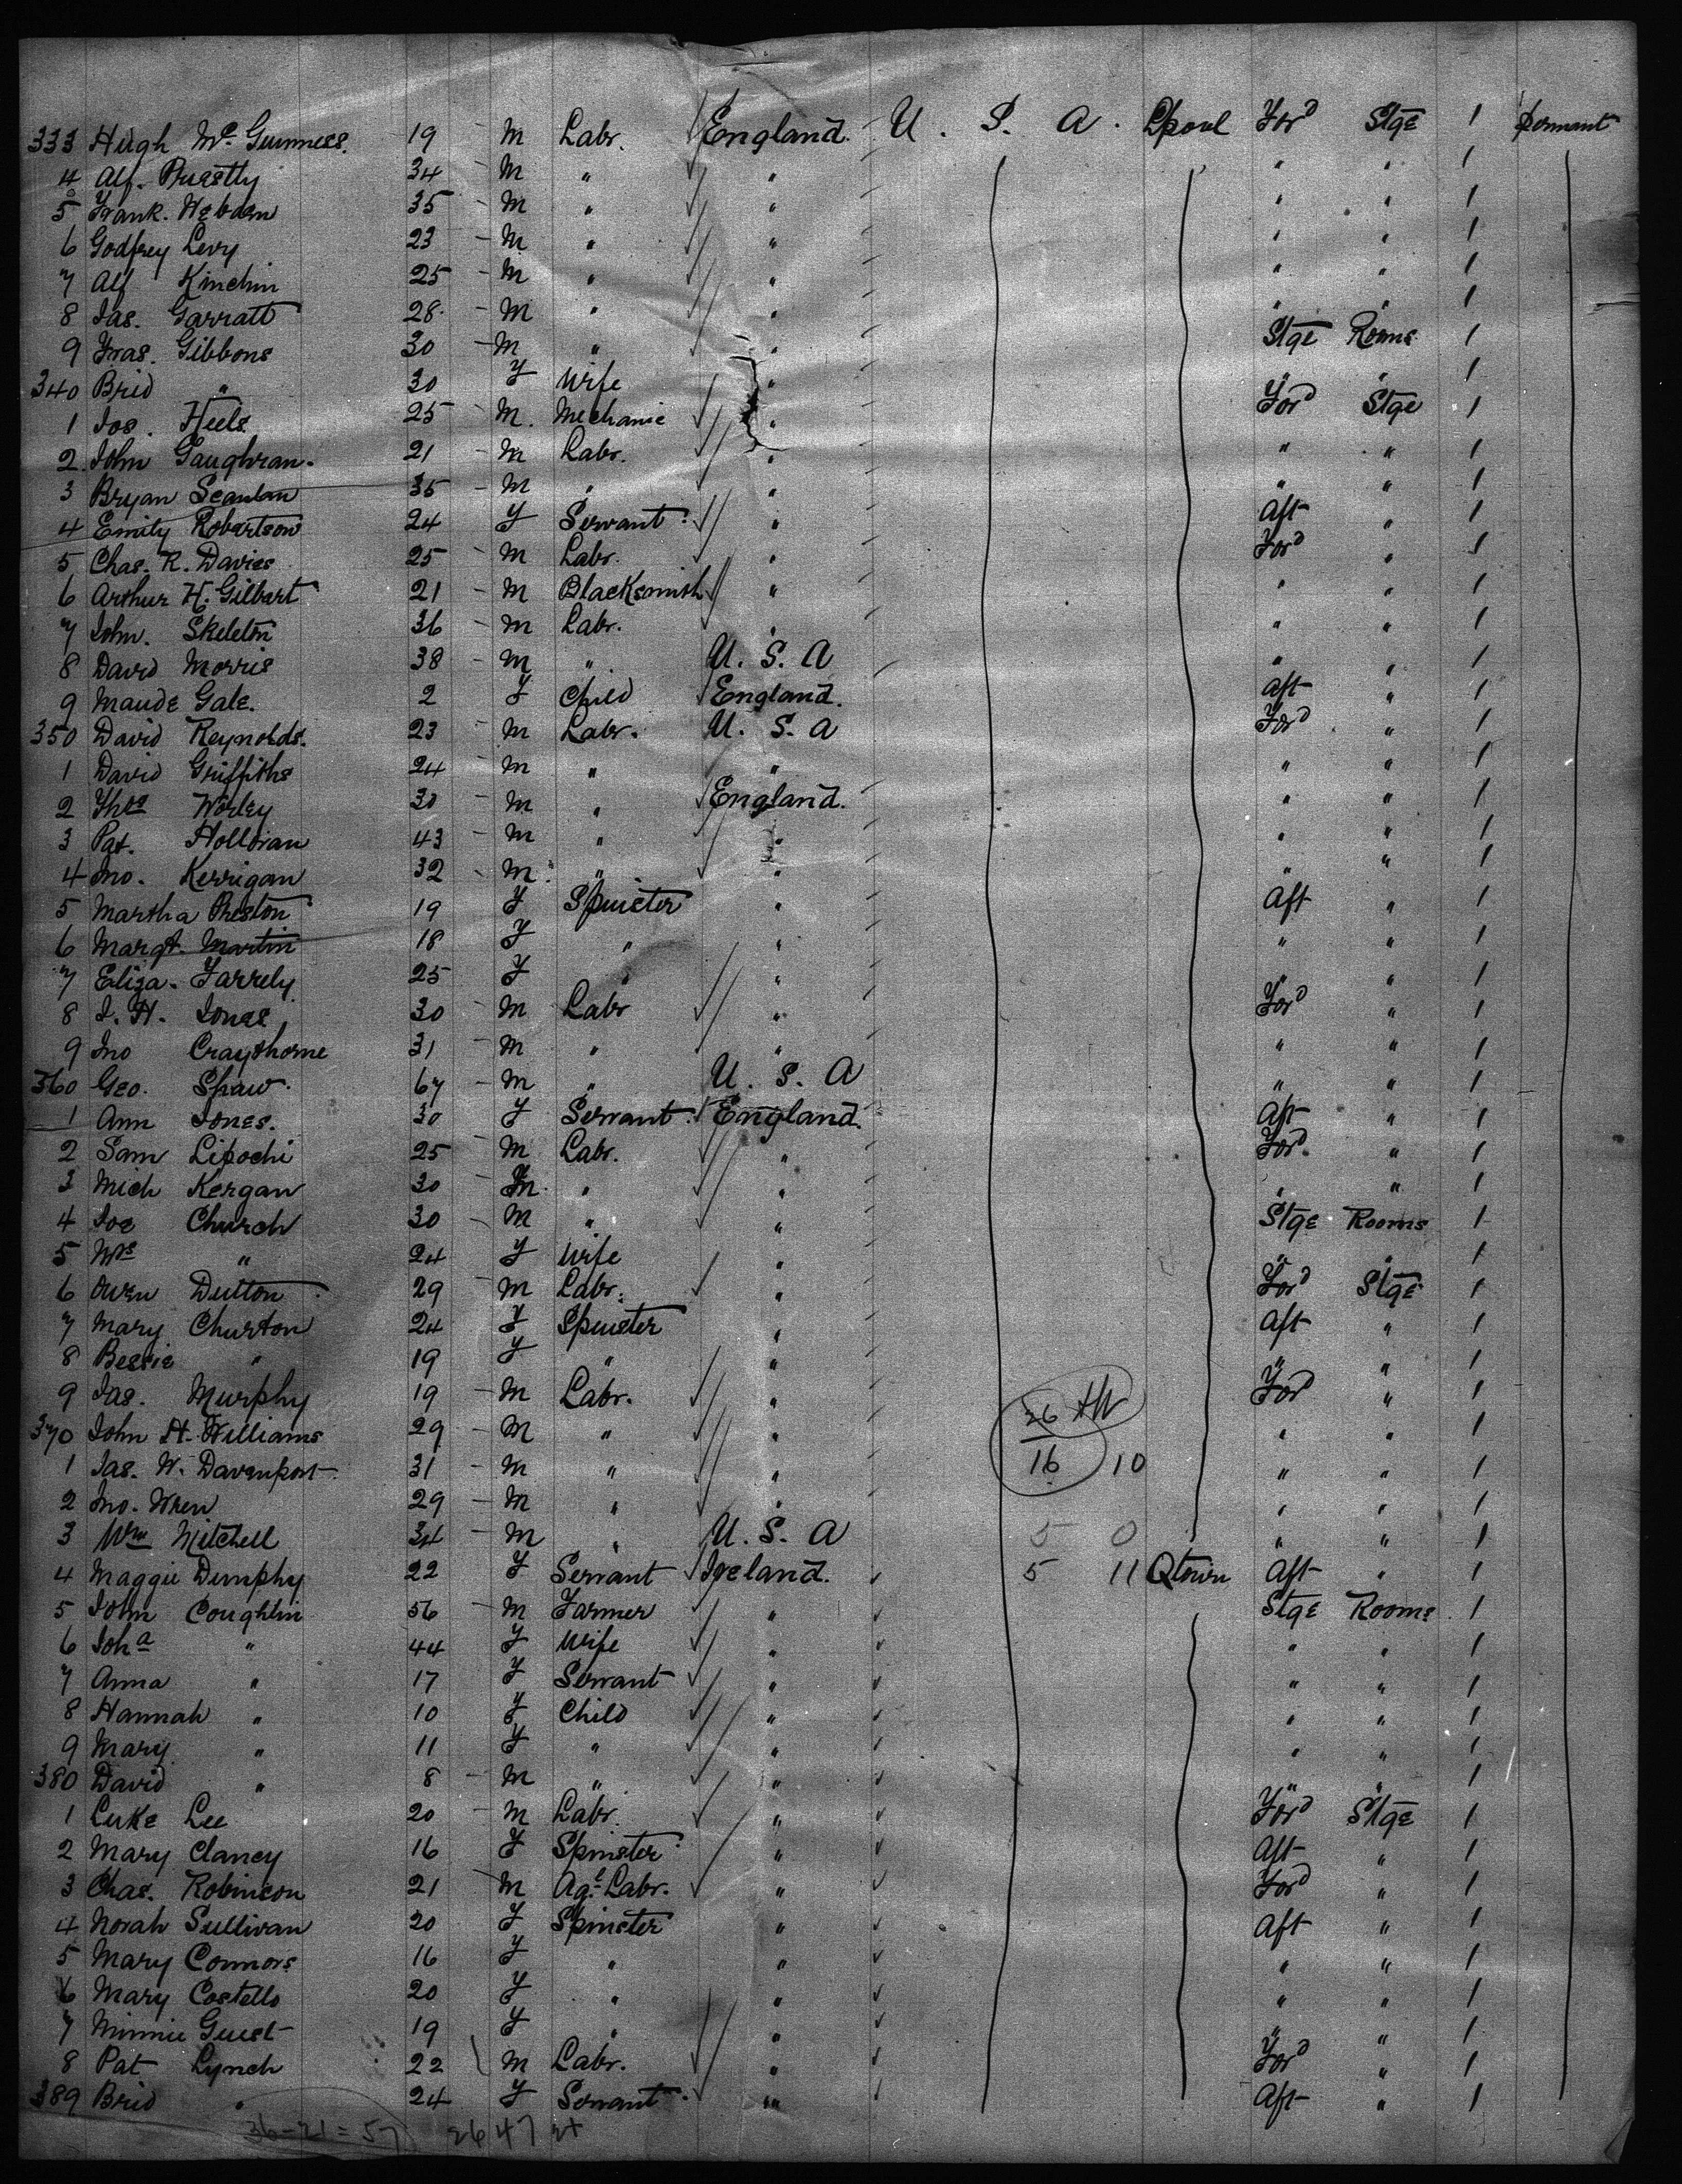 333 Hugh McGuinness. 19 M Labr. England. U. S. A. Lpool Ford Stge 1 permant
4 Alf. Priestly 34 M " " " " 1
5 Frank. Webden 35 M " " " " 1
6 Godfrey Levy 23 M " " " " 1
7 Alf Kinchin 25 M " " " " 1
8 Jas. Garratt 28 M " " " " 1
9 Fras. Gibbons 30 M " " Stge Rooms 1
340 Brid " 30 F Wife " " " 1
1 Jos. Heels 25 M. Mechanic " Ford Stge 1
2 John Gaughran. 21 M Labr. " " " 1
3 Bryan Scanlan 35 M " " " " 1
4 Emily Robertson 24 F Servant " Aft " 1
5 Chas. R. Davies 25 M Labr. " Ford " 1
6 Arthur H. Gilbart 21 M Blacksmith " " " 1
7 John. Skeleton 36 M Labr. " " " 1
8 David Morris 38 M " U. S. A " " 1
9 Maude Gale. 2 F Child England. Aft " 1
350 David Reynolds. 23 M Labr. U. S. A Ford " 1
1 David Griffiths 24 M " " " " 1
2 Thos Worley 30 M " England. " " 1
3 Pat. Holloran 43 M " " " " 1
4 Jno. Kerrigan 32 M " " " " 1
5 Martha Preston 19 F Spinster " Aft " 1
6 Margt. Martin 18 F " " " " 1
7 Eliza. Farrely 25 F " " " " 1
8 J. H. Jones 30 M Labr " Ford " 1
9 Jno Craythorne 31 M " " " " 1
360 Geo. Shaw. 67 M " U. S. A " " 1
1 Ann Jones. 30 F Servant England. Aft " 1
2 Sam Lipochi 25 M Labr. " Ford. " 1
3 Mich Kergan 30 M " " " " 1
4 Joe Church 30 M " " Stge Rooms 1
5 Mrs " 24 F Wife " " " 1
6 Owen Dutton 29 M Labr. " Ford Stge 1
7 Mary Churton 24 F Spinster " Aft " 1
8 Bessie " 19 F " " " " 1
9 Jas. Murphy 19 M Labr. " Ford " 1
370 John H. Williams 29 M " " 26 " " 1
1 Jas. W. Davenport. 31 M " " 16 10 " " 1
2 Jno. Wren 29 M " " " " 1
3 Wm Mitchell 34 M " U. S. A 5 0 " " 1
4 Maggie Dumphy 22 F Servant Ireland. 5 11 Qtown Aft " 1
5 John Coughlin 56 M Farmer " Stge Rooms 1
6 Joha " 44 F Wife " " " 1
7 Anna " 17 F Servant " " " 1
8 Hannah " 10 F Child " " " 1
9 Mary " 11 F " " " " 1
380 David " 8 M " " " " 1
1 Luke Lee 20 M Labr. " Ford Stge 1
2 Mary Clancy 16 F Spinster " Aft " 1
3 Chas. Robinson 21 M Agl Labr. " Ford " 1
4 Norah Sullivan 20 F Spinster " Aft " 1
5 Mary Connors 16 F " " " " 1
6 Mary Costello 20 F " " " " 1
7 Minnie Guest 19 F " " " " 1
8 Pat Lynch 22 M Labr. " Ford " 1
389 Brid " 24 F Servant " Aft " 1
36-21=57 26 47